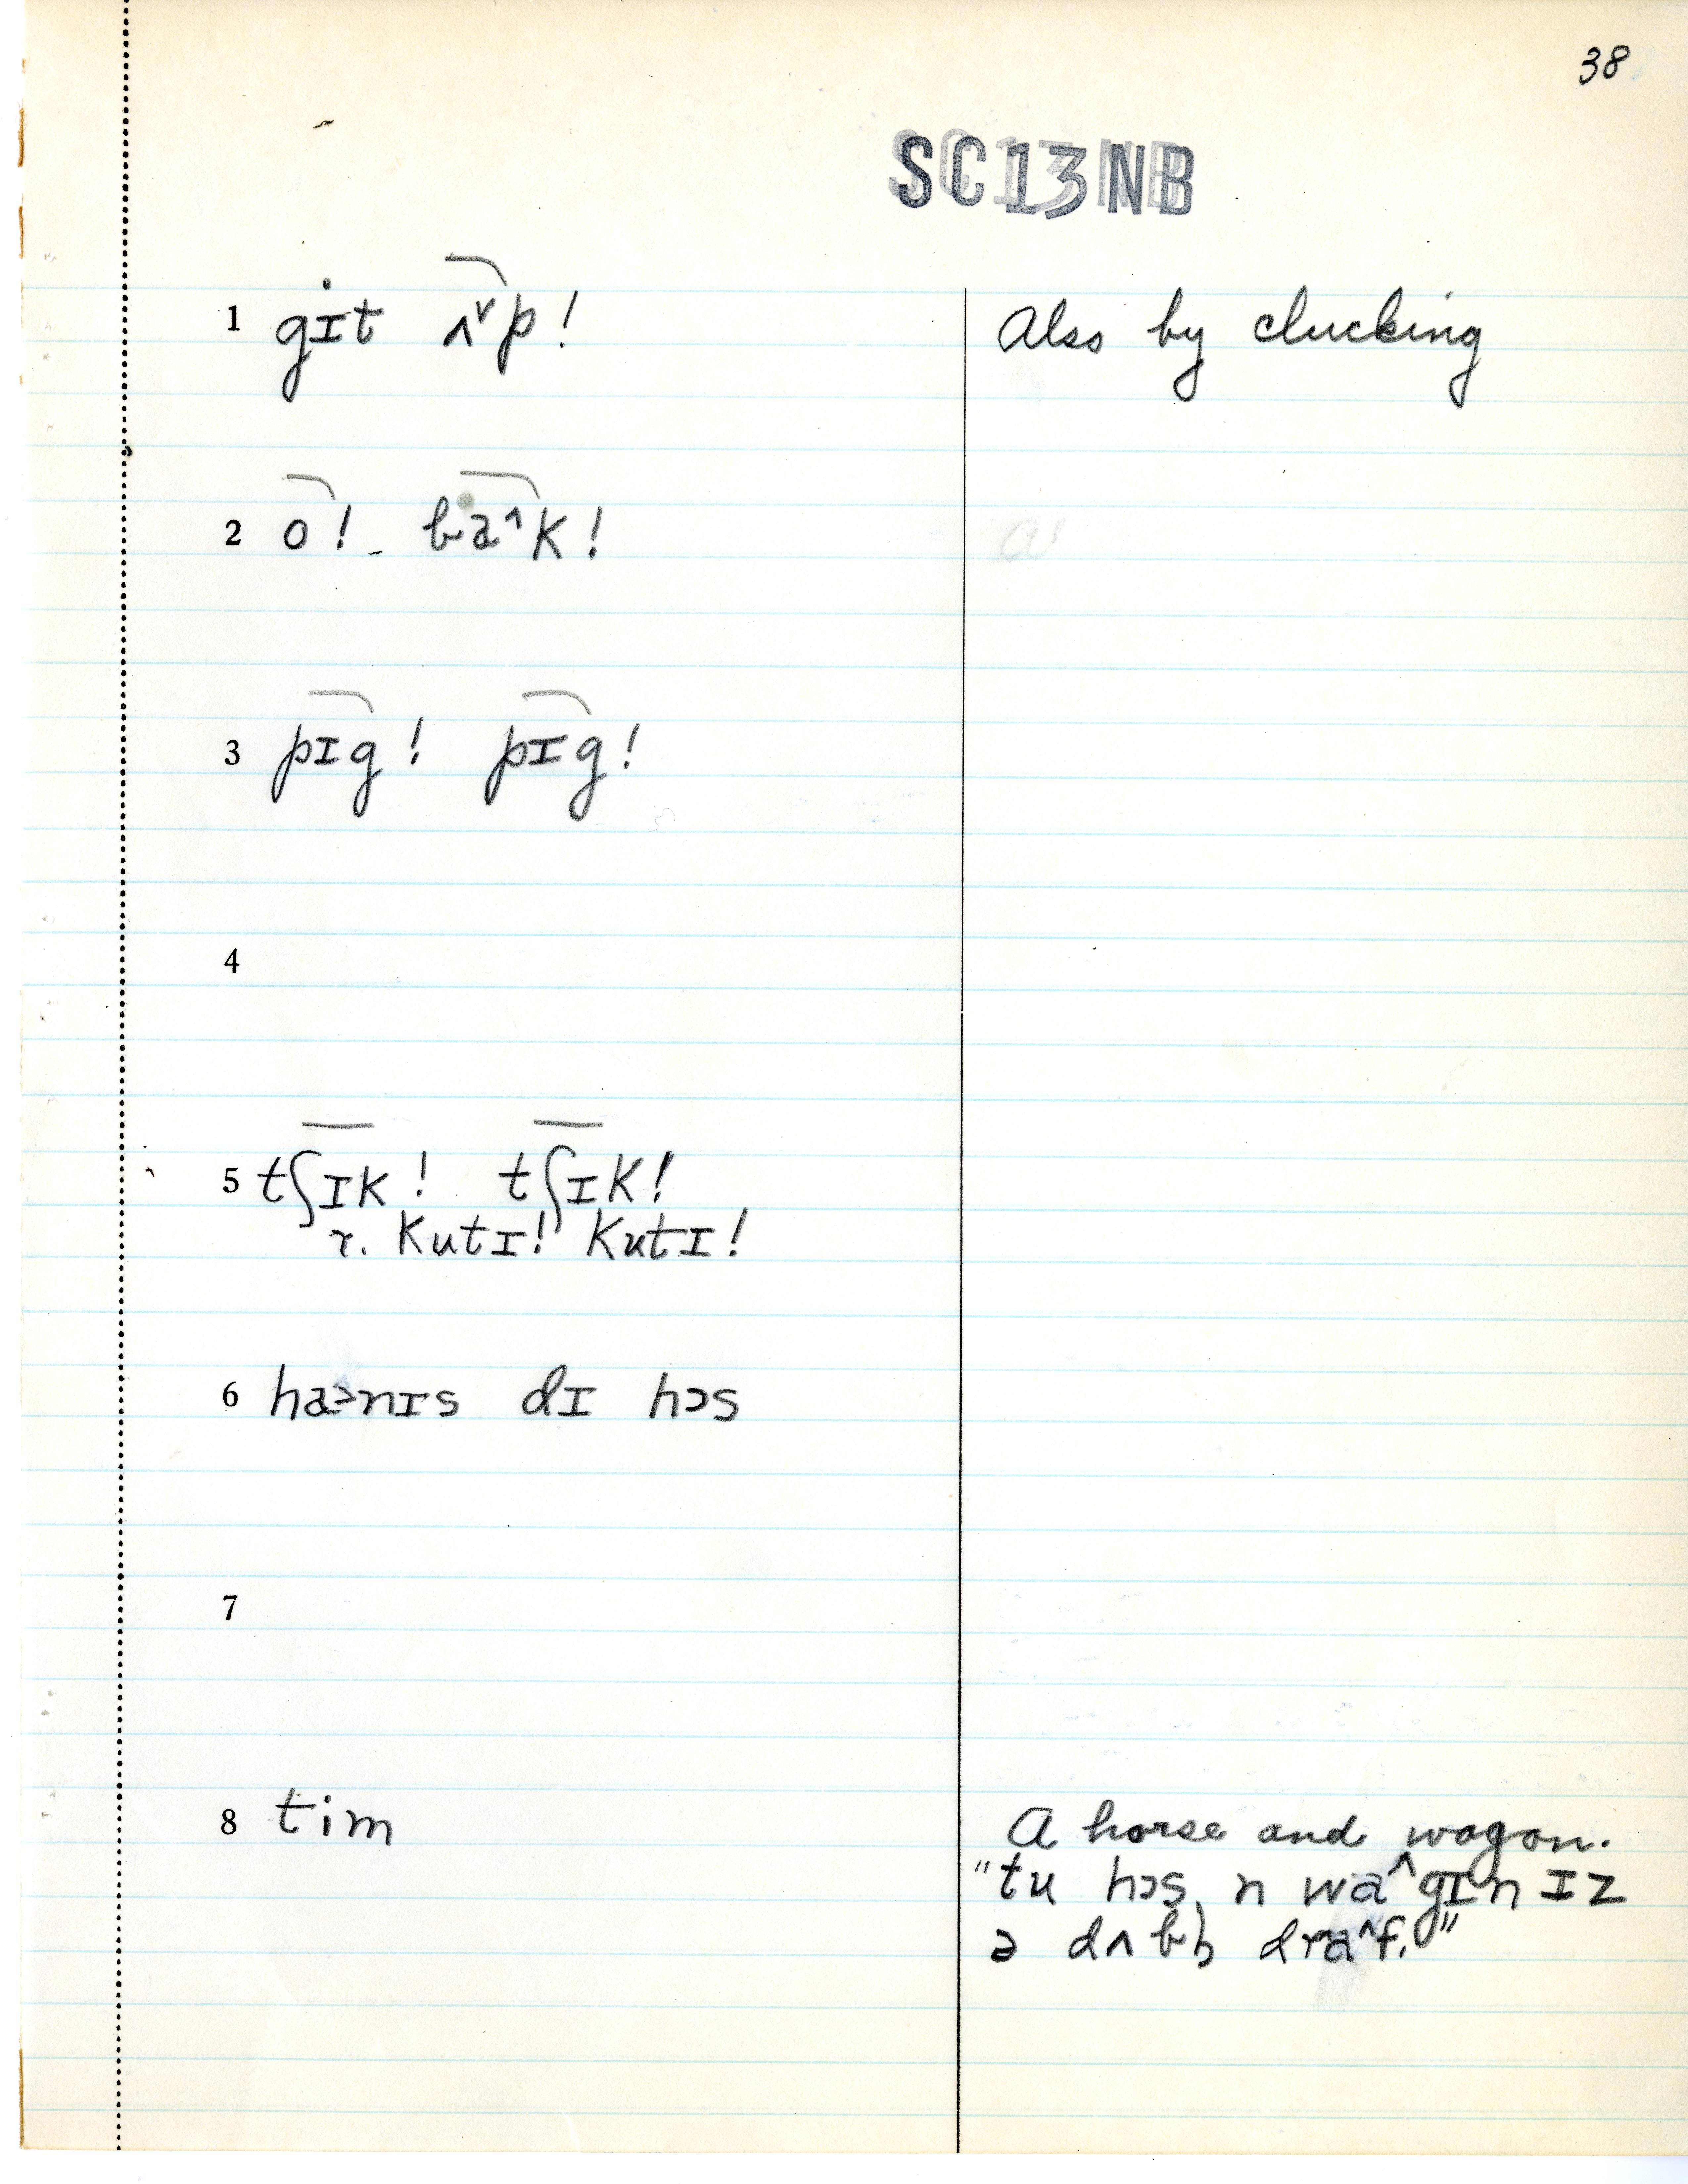 38
SC13NB
1 gɪt ʌ˅p! Also by clucking
2 o! - ba^k!
3 pɪg! pɪg!
4
5 tʃɪk! tʃɪk!
r. kutɪ! kutɪ!
6 ha>nɪs dɪ hɔs
7
8 tim A horse and wagon.
"tu hɔs n wa^gɪn ɪz
ə dʌbḷ dra^f."